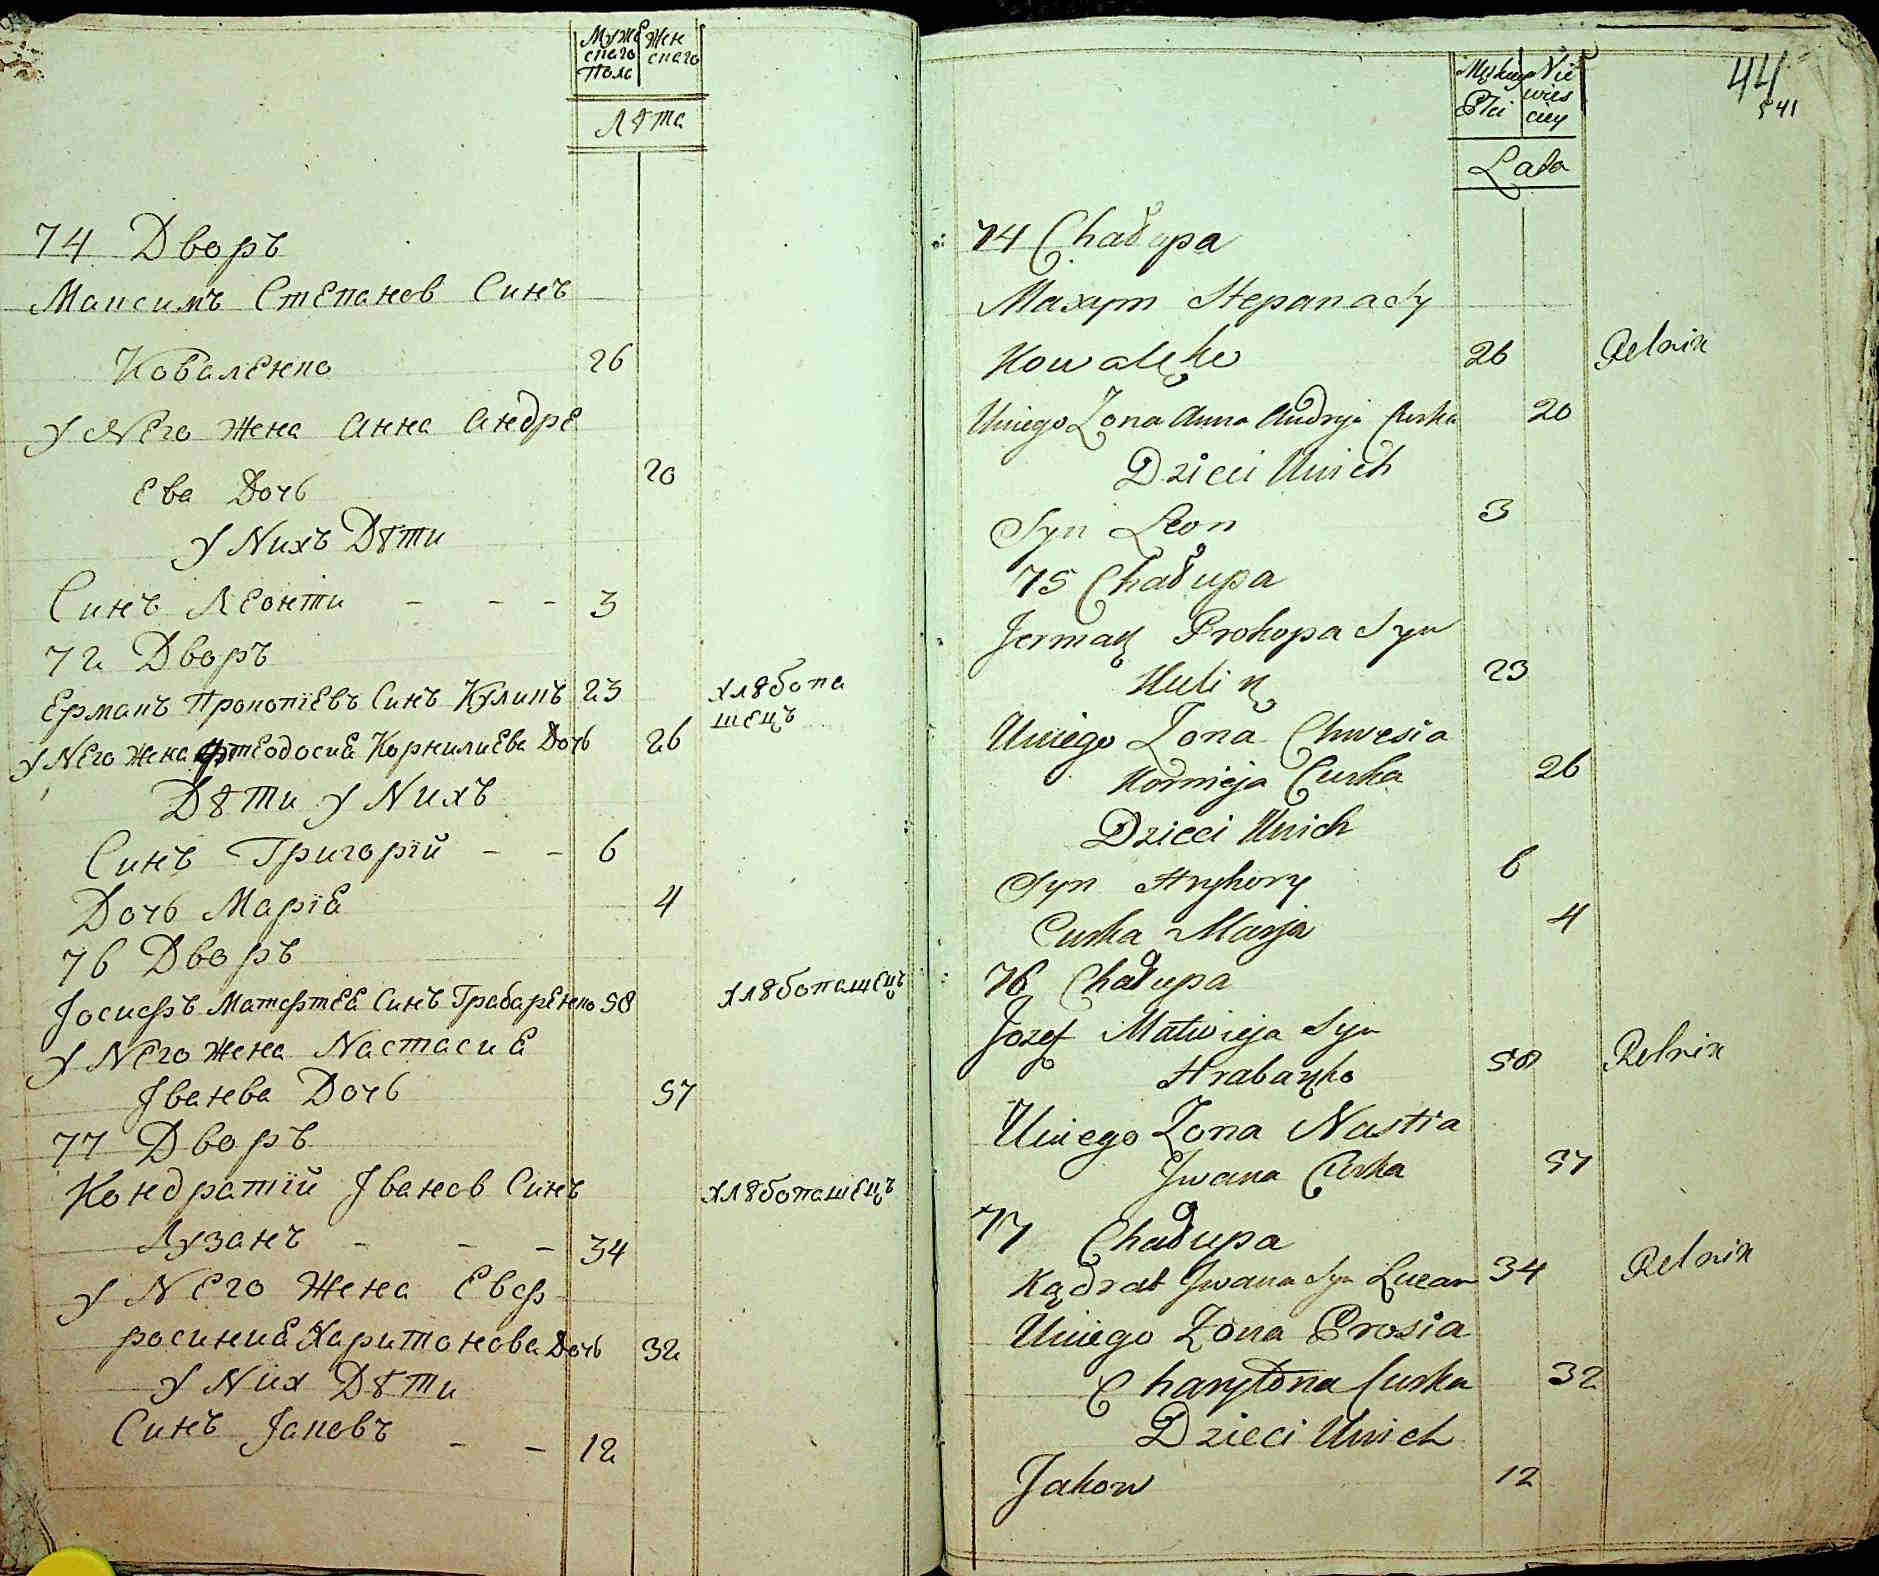 Муже Жен
скаго скаго
Пола
Лѣта
74 Дворъ
Максимъ Степанов Синъ
Коваленко 26
У Него Жена Анна Андре
ева Дочь 20
У Нихъ Дѣти
Синъ Леонти - - - 3
72 Дворъ
Ермакъ Прокопіевъ Синъ Куликъ 23 хлѣбопа
шецъ
У Него Жена Фтеодосиа Корнилиева Дочь 26
Дѣти у Нихъ
Синъ Григорій - - 6
Дочь Маріа 4
76 Дворъ
Іосифъ Матфтеа Синъ Грабаренко 58 хлѣбопашецъ
У Него Жена Настасиа
Іванова Дочь 57
77 Дворъ
Кондратій Іванов Синъ хлѣбопашецъ
Лузанъ - - - 34
У Него Жена Евф
росиниа Харитонова Дочь 32
У Них Дѣти
Синъ Іаковъ - - 12
44
541
Męskey Nie
Płci wies
ciey
Lata
74 Chałupa
Maxym Stepana Sy
Kowalęko 26 Rolnik
Uniego Żona Anna Andryja Curka 20
Dzieci Unich
Syn Leon 3
75 Chałupa
Jermak Prokopa Syn
Kulik 23
Uniego Żona Chwesia
Kornieja Curka 26
Dzieci Unich
Syn Hryhory 6
Curka Marja 4
76 Chałupa
Jozef Matwieja Syn
Hrabaręko 58 Rolnik
Uniego Żona Nastia
Jwana Curka 57
77 Chałupa
Kądrat Jwana Syn Luzan 34 Rolnik
Uniego Żona Prosia
Charytona Curka 32
Dzieci Unich
Jakow 12